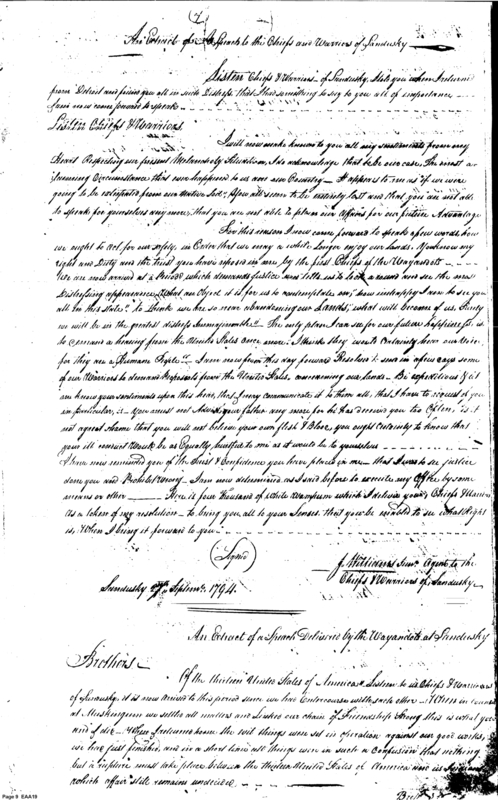 (7
An Extract of a Speech to the Chiefs and Warriors of Sandusky
Listen Chiefs & Warriors of Sandusky, I tell you when I returned
from Detroit and finding you all in such Distress, that I had something to say to you all of importance
I am now come forward to speak
Listen Chiefs & Warriors
I will now make known to you all my sentiments from my
Heart Respecting our present Melancholy Situation, I do acknowledge that to be our case, The most a
larming Circumstance that ever happened to us and our Country. It appears to me as if we were
going to be extirpated from our native Soil; You all seem to be entirely lost and that you are not able
to speak for yourselves any more, that you are not able to plan our affairs for our future advantage
For this reason I now come forward to speak a few words, how
we ought to act for our safety, in Order that we may a while longer enjoy our Lands. You know my
right and Duty and the trust you have reposed in me, by the first Chiefs of the Wayandott
We are now arrived at a Period which demands justice and lets us to look around and see the most
Distressing appearance, What an Object it is for us to contemplate on, how unhappy I am to see you
all in this state, to think we are so near abandoning our Lands, what will become of us. Surely
we will be in the greatest distress The only plan I can see for our future happiness is
to demand a hearing from the United States once more. I think they will certainly hear our Voice
for they are a Humane People. I am now from this day forward Resolved to send in a few days some
of our Warriors to demand Proposals from the United States, concerning our Lands. Be expeditious & let
me know your sentiments upon this head, that I may communicate it to them all, that I have to request of you
in particular, is You must not your father any more for he has deceived you too Often; is it
not a great shame that you will not believe your own flesh & Blood, you ought certainly to know that
your ill conduct would be as Equally hurtful to me as it would be to yourselves
I have now reminded you of the trust & Confidence you have placed in me that I was to see justice
done you and Prohibit wrong I am now determined as I said before to execute my Office by some
means or other Here is four thousand of white Wampum which I deliver you Chiefs & Warriors
As a token of my resolution to bring you all to your Senses that you be enabled to see what Right
is, When I bring it forward to you
Signed
J. Williams Junr. Agent to the
Chiefs & Warriors of Sandusky
Sandusky Septemr. 1794
An Extract of a Speech Delivered by the Wayandots at Sandusky
Brothers
Of the thirteen United States of America Listen to us Chiefs & Warriors
of Sandusky. it is now arrived to this period since we had Intercourse with each other When in council
at Muskingum we settled all matters and linked our chain of Friendship strong this is what you
and I did When I returned home the evil things were set in operation against our good works,
we had just finished, and in a short time all things were in such a confusion that nothing
but a rupture must take place between the thirteen United States of America and us Indians
which affair still remains undecided
Page 8 EAA19